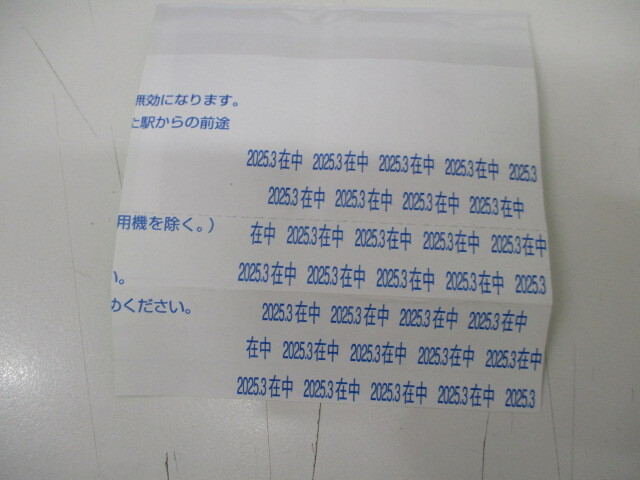 無効になります。
た駅からの前途
2025.3在中 2025.3在中 2025.3在中 2025.3在中 2025.3
2025.3在中 2025.3在中 2025.3在中 2025.3在中
用機を除く。)
在中 2025.3在中 2025.3在中 2025.3在中 2025.3在中
い。
2025.3在中 2025.3在中 2025.3在中 2025.3在中 2025.3
めください。
2025.3在中 2025.3在中 2025.3在中 2025.3在中
在中 2025.3在中 2025.3在中 2025.3在中 2025.3在中
2025.3在中 2025.3在中 2025.3在中 2025.3在中 2025.3